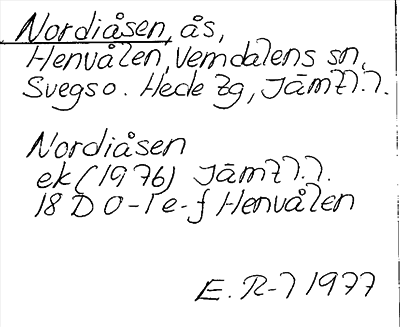 Nordiåsen, ås,
Henvålen, Vemdalens sn,
Svegs o. Hede tg, Jämtl.l.
Nordiåsen
ek (1976) Jämtl.l.
18 D 0-1 e-f Henvålen
E. R-l 1977